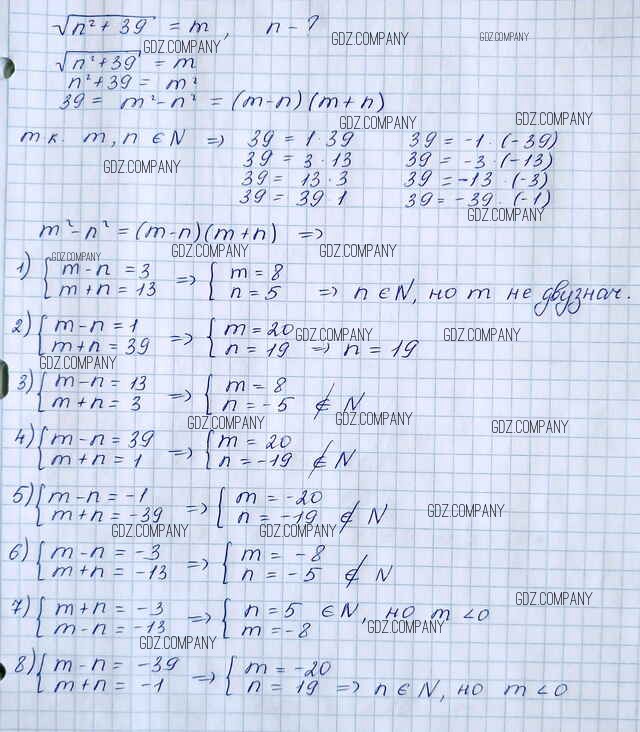 √n² + 39 = m, n - ?
GDZ.COMPANY GDZ.COMPANY GDZ.COMPANY
√n² + 39 = m
n² + 39 = m²
39 = m² - n² = (m-n)(m+n)
GDZ.COMPANY GDZ.COMPANY
т.к. m, n ∈ N => 39 = 1 · 39 39 = -1 · (-39)
39 = 3 · 13 39 = -3 · (-13)
GDZ.COMPANY
39 = 13 · 3 39 = -13 · (-3)
39 = 39 · 1 39 = -39 · (-1)
GDZ.COMPANY
m² - n² = (m-n)(m+n) =>
GDZ.COMPANY GDZ.COMPANY GDZ.COMPANY
1) { m - n = 3 => { m = 8
m + n = 13 n = 5 => n ∈ N, но m не двузнач.
2) { m - n = 1 => { m = 20
GDZ.COMPANY GDZ.COMPANY
m + n = 39 n = 19 => n = 19
GDZ.COMPANY
3) { m - n = 13 => { m = 8
m + n = 3 n = -5 ∉ N
GDZ.COMPANY GDZ.COMPANY GDZ.COMPANY
4) { m - n = 39 => { m = 20
m + n = 1 n = -19 ∉ N
5) { m - n = -1 => { m = -20
m + n = -39 n = -19 ∉ N
GDZ.COMPANY GDZ.COMPANY GDZ.COMPANY
6) { m - n = -3 => { m = -8
m + n = -13 n = -5 ∉ N
GDZ.COMPANY
7) { m + n = -3 => { n = 5 ∈ N, но m < 0
m - n = -13 m = -8
GDZ.COMPANY GDZ.COMPANY
8) { m - n = -39 => { m = -20
m + n = -1 n = 19 => n ∈ N, но m < 0